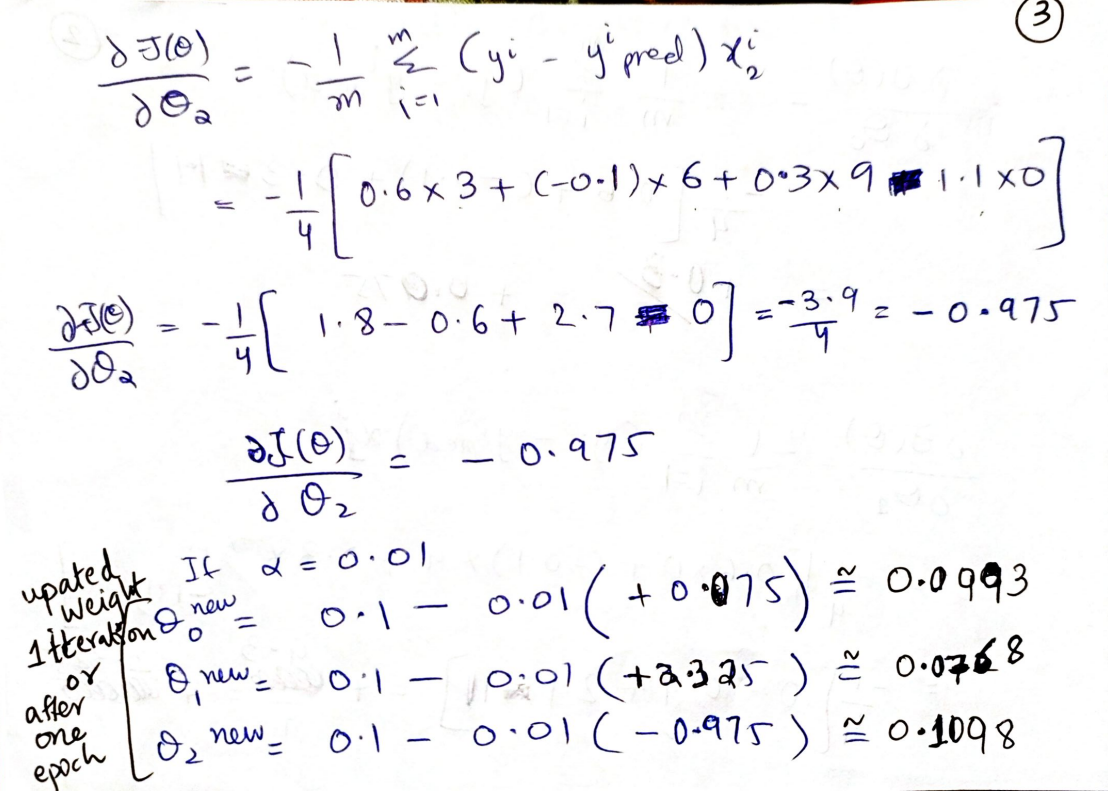 3
∂J(θ)/∂θ₂ = - 1/m Σ_{i=1}^{m} (yⁱ - yⁱ pred) x₂ⁱ
= - 1/4 [ 0.6 × 3 + (-0.1) × 6 + 0.3 × 9 1.1 × 0 ]
∂J(θ)/∂θ₂ = - 1/4 [ 1.8 - 0.6 + 2.7 0 ] = -3.9/4 = - 0.975
∂J(θ)/∂θ₂ = - 0.975
If α = 0.01
upated weight 1 iteration or after one epoch
θ₀ new = 0.1 - 0.01 ( + 0.075 ) ≅ 0.0993
θ₁ new = 0.1 - 0.01 ( +2.325 ) ≅ 0.0768
θ₂ new = 0.1 - 0.01 ( - 0.975 ) ≅ 0.1098